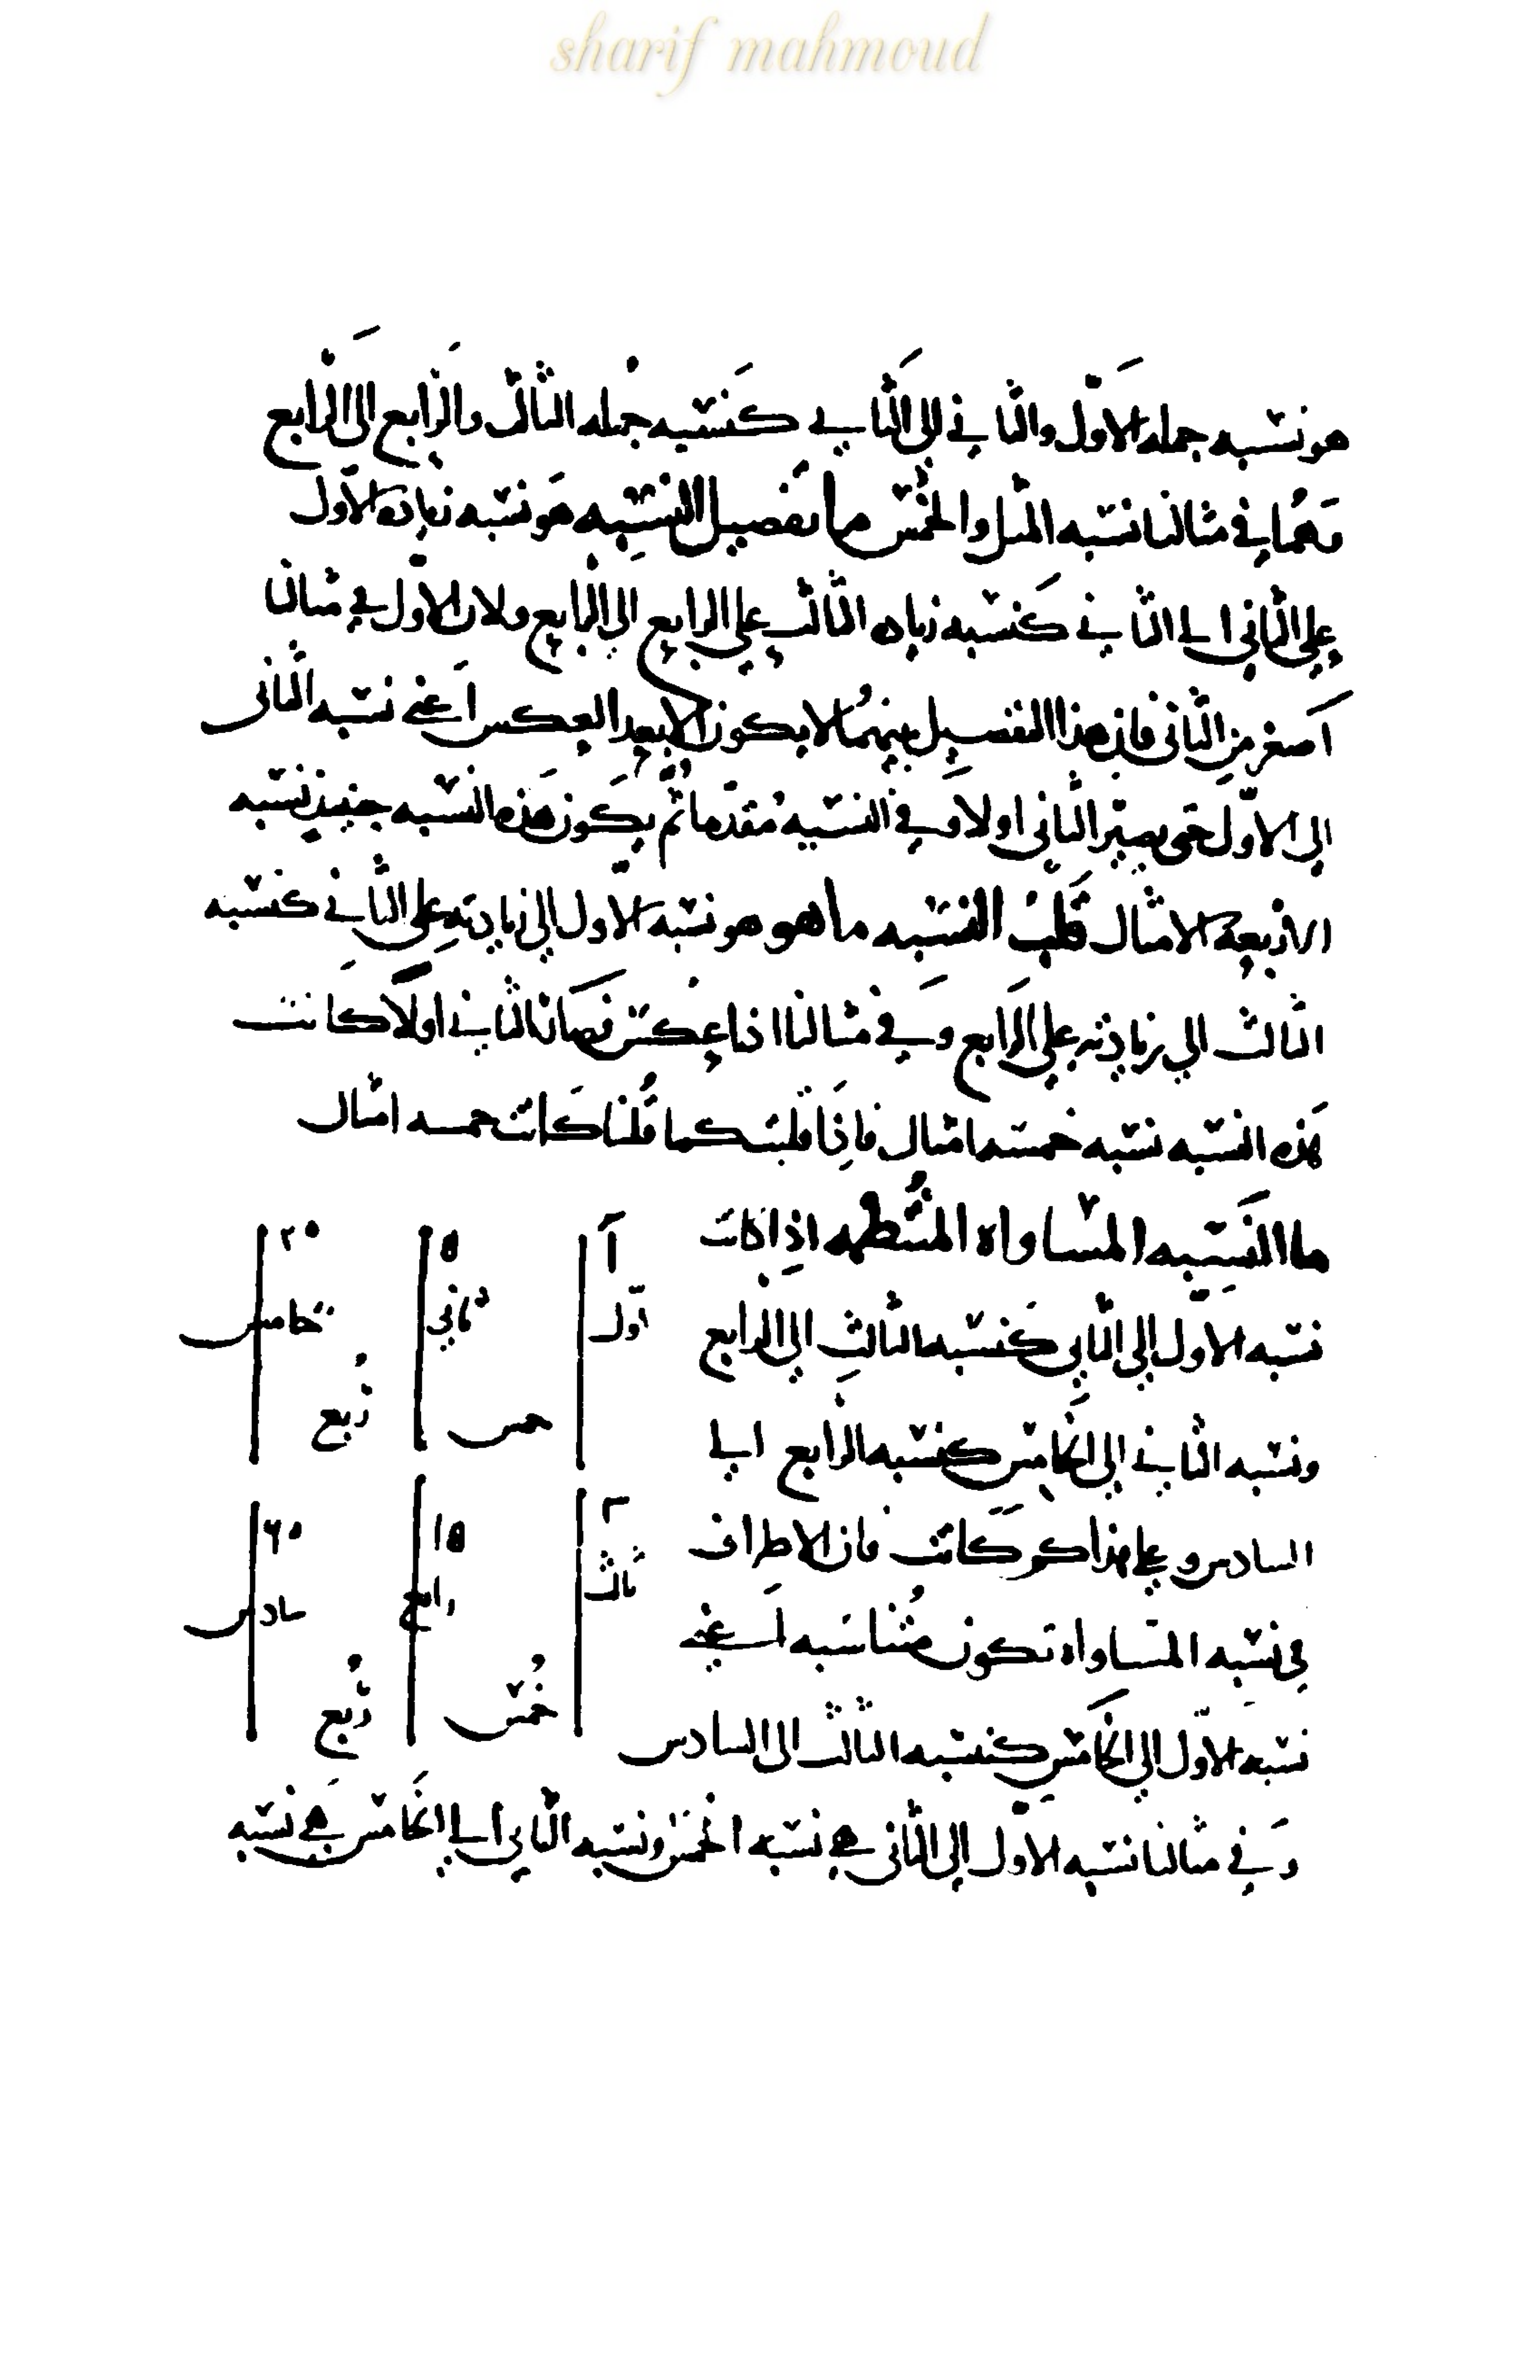 sharif mahmoud
هو نسبه جمله الاوّل والثاني الى الثاني كنسبه جُمله الثالث والرابع الى الرابع
وهُما في مثالنا نسبه المثل والخُمس ما تفصيل النسبه هو نسبه زياده الاول
على الثاني الى الثاني كنسبه زياده الثالث على الرابع الى الرابع ولان الاول في مثالنا
اصغر من الثاني فان هذا التفصيل بينهُما لا يكون الا بعد العكس اعني نسبه الثاني
الى الاوّل حتى يصير الثاني اولا وفي النسبه مُقدّما ثم يكون هذه النسبه حينيذ نسبه
الاربعة الامثال قلب النسبه ما هو هو نسبه الاول الى زيادته على الثاني كنسبه
الثالث الى زيادته على الرابع وفي مثالنا اذا عكس فصار الثاني اولا كانت
هذه النسبه نسبه خمسه امثال فاذا قلبت كما قُلنا كانت خمسه امثال
ما النسبه المساواه المنتظمه اذا كانت
نسبه الاوّل الى الثاني كنسبه الثالث الى الرابع
ونسبه الثاني الى الخامس كنسبه الرابع الى
السادس وعلى هذا كم كانت فان الاطراف
في نسبه المساواه تكون مُتناسبه اعني
نسبه الاوّل الى الخامس كنسبه الثالث الى السادس
وفي مثالنا نسبه الاوّل الى الثاني هي نسبه الخمس ونسبه الثاني الى الخامس هي نسبه
ا ٥ ٢٠
اوّل ثاني خامس
خمس رُبع
٢ ١٥ ٦٠
ثالث رابع سادس
خُمس رُبع